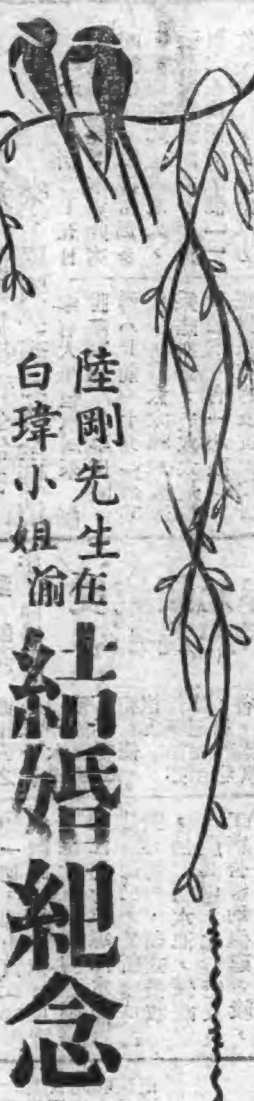 陸剛先生在
白瑋小姐渝
結婚紀念